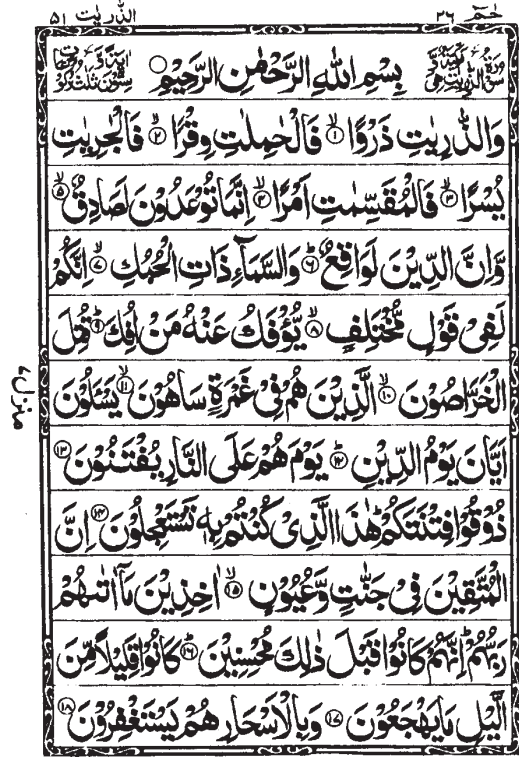 حٰمٓ ٢٦
الذّٰريٰت ٥١
بِسْمِ اللهِ الرَّحْمٰنِ الرَّحِيْمِ
وَالذّٰرِيٰتِ ذَرْوًا ۙ﴿١﴾ فَالْحٰمِلٰتِ وِقْرًا ۙ﴿٢﴾ فَالْجٰرِيٰتِ
يُسْرًا ۙ﴿٣﴾ فَالْمُقَسِّمٰتِ اَمْرًا ۙ﴿٤﴾ اِنَّمَا تُوْعَدُوْنَ لَصَادِقٌ ۙ﴿٥﴾
وَّاِنَّ الدِّيْنَ لَوَاقِعٌ ؕ﴿٦﴾ وَالسَّمَآءِ ذَاتِ الْحُبُكِ ۙ﴿٧﴾ اِنَّكُمْ
لَفِيْ قَوْلٍ مُّخْتَلِفٍ ۙ﴿٨﴾ يُّؤْفَكُ عَنْهُ مَنْ اُفِكَ ؕ﴿٩﴾ قُتِلَ
الْخَرّٰصُوْنَ ۙ﴿١٠﴾ الَّذِيْنَ هُمْ فِيْ غَمْرَةٍ سَاهُوْنَ ۙ﴿١١﴾ يَسْـَٔلُوْنَ
اَيَّانَ يَوْمُ الدِّيْنِ ؕ﴿١٢﴾ يَوْمَ هُمْ عَلَى النَّارِ يُفْتَنُوْنَ ﴿١٣﴾
ذُوْقُوْا فِتْنَتَكُمْ ؕ هٰذَا الَّذِيْ كُنْتُمْ بِهٖ تَسْتَعْجِلُوْنَ ﴿١٤﴾ اِنَّ
الْمُتَّقِيْنَ فِيْ جَنّٰتٍ وَّعُيُوْنٍ ۙ﴿١٥﴾ اٰخِذِيْنَ مَاۤ اٰتٰىهُمْ
رَبُّهُمْ ؕ اِنَّهُمْ كَانُوْا قَبْلَ ذٰلِكَ مُحْسِنِيْنَ ؕ﴿١٦﴾ كَانُوْا قَلِيْلًا مِّنَ
الَّيْلِ مَا يَهْجَعُوْنَ ﴿١٧﴾ وَبِالْاَسْحَارِ هُمْ يَسْتَغْفِرُوْنَ ﴿١٨﴾
منزل ٧